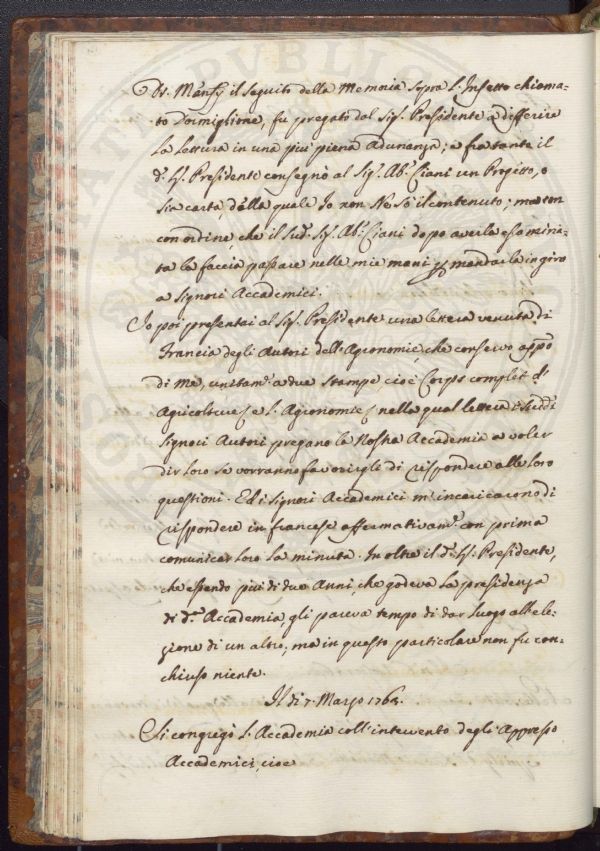 Dr. Manfj il seguito della Memoria sopra l'Insetto chiama=
to Dormiglione, fu pregato dal Sig.r Presidente a differire
la Lettura in una più piena Adunanza; e fra tanto il
d.o Sig.r Presidente consegnò al Sig.r Ab.e Ciani un Progetto, o
sia carta, della quale Io non Ne sò il contenuto; ma con
con ordine, che il sud.o Sig.r Ab.e Ciani dopo averla esamina=
ta la faccia passare nelle mie mani p mandarla in giro
a Signori Accademici.
Io poi presentai al Sig.r Presidente una lettera venuta di
Francia degli Autori dell'Agronomie, che conservo appo
di Me, unitam.e a due stampe, cioè Corps complet d'
Agricolture, e L'Agronomie, nella qual lettera i sudd.i
Signori Autori pregano la Nostra Accademia a voler
dir loro se vorranno favorirgli di rispondere alle loro
questioni. Ed i Signori Accademici m'incaricarono di
rispondere in francese affermativam.e con prima
comunicar loro la minuta. In oltre il d.o Sig.r Presidente,
che essendo più di due Anni, che godeva la presidenza
di d.a Accademia, gli pareva tempo di dar luogo all'ele=
zione di un altro; ma in questo particolare non fu con=
chiuso niente.
Il di 7. Marzo 176
Si congregò l'Accademia coll'intervento degli Appresso
Accademici, cioè
PUBLIC